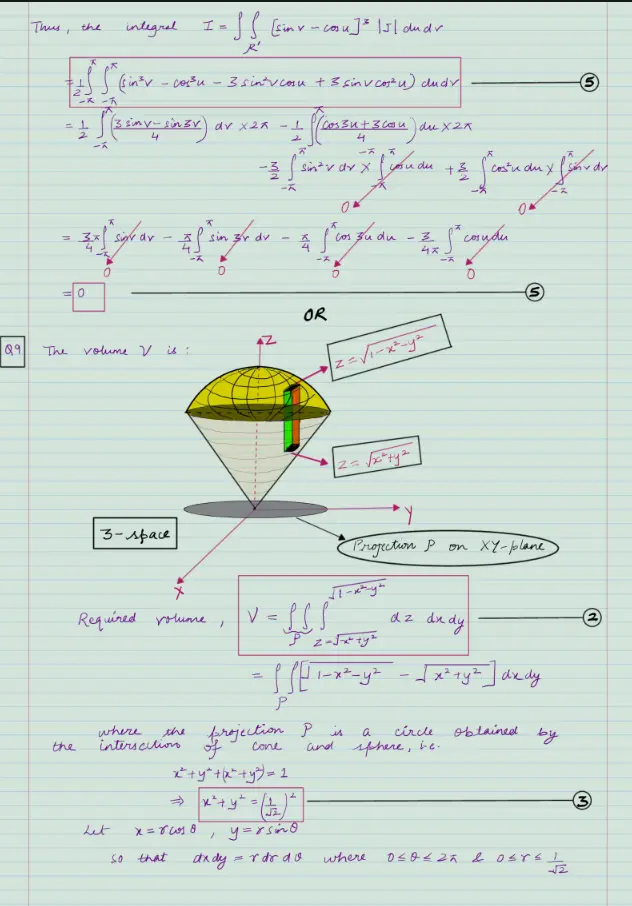 Thus, the integral I = ∫∫_R' [sin v − cos u]³ |J| du dv
= 1/2 ∫_{-π}^{π} ∫_{-π}^{π} (sin³v − cos³u − 3 sin²v cos u + 3 sin v cos²u) du dv ⑤
= 1/2 ∫_{-π}^{π} (3 sin v − sin 3v)/4 dv × 2π − 1/2 ∫_{-π}^{π} (cos 3u + 3 cos u)/4 du × 2π
− 3/2 ∫_{-π}^{π} sin²v dv × ∫_{-π}^{π} cos u du + 3/2 ∫_{-π}^{π} cos²u du × ∫_{-π}^{π} sin v dv
0 0
= 3π/4 ∫_{-π}^{π} sin v dv − π/4 ∫_{-π}^{π} sin 3v dv − π/4 ∫_{-π}^{π} cos 3u du − 3/4π ∫_{-π}^{π} cos u du
0 0 0 0
= 0 ⑤
OR
Q9 The volume V is :
Z
z = √(1−x²−y²)
z = √(x²+y²)
Y
3-space
Projection P on XY-plane
X
Required volume, V = ∫∫_P ∫_{z=√(x²+y²)}^{√(1−x²−y²)} dz dx dy ②
= ∫∫_P [√(1−x²−y²) − √(x²+y²)] dx dy
where the projection P is a circle obtained by
the intersection of cone and sphere, i.e.
x²+y²+(x²+y²) = 1
⇒ x²+y² = (1/√2)² ③
Let x = r cos θ , y = r sin θ
so that dx dy = r dr dθ where 0 ≤ θ ≤ 2π & 0 ≤ r ≤ 1/√2